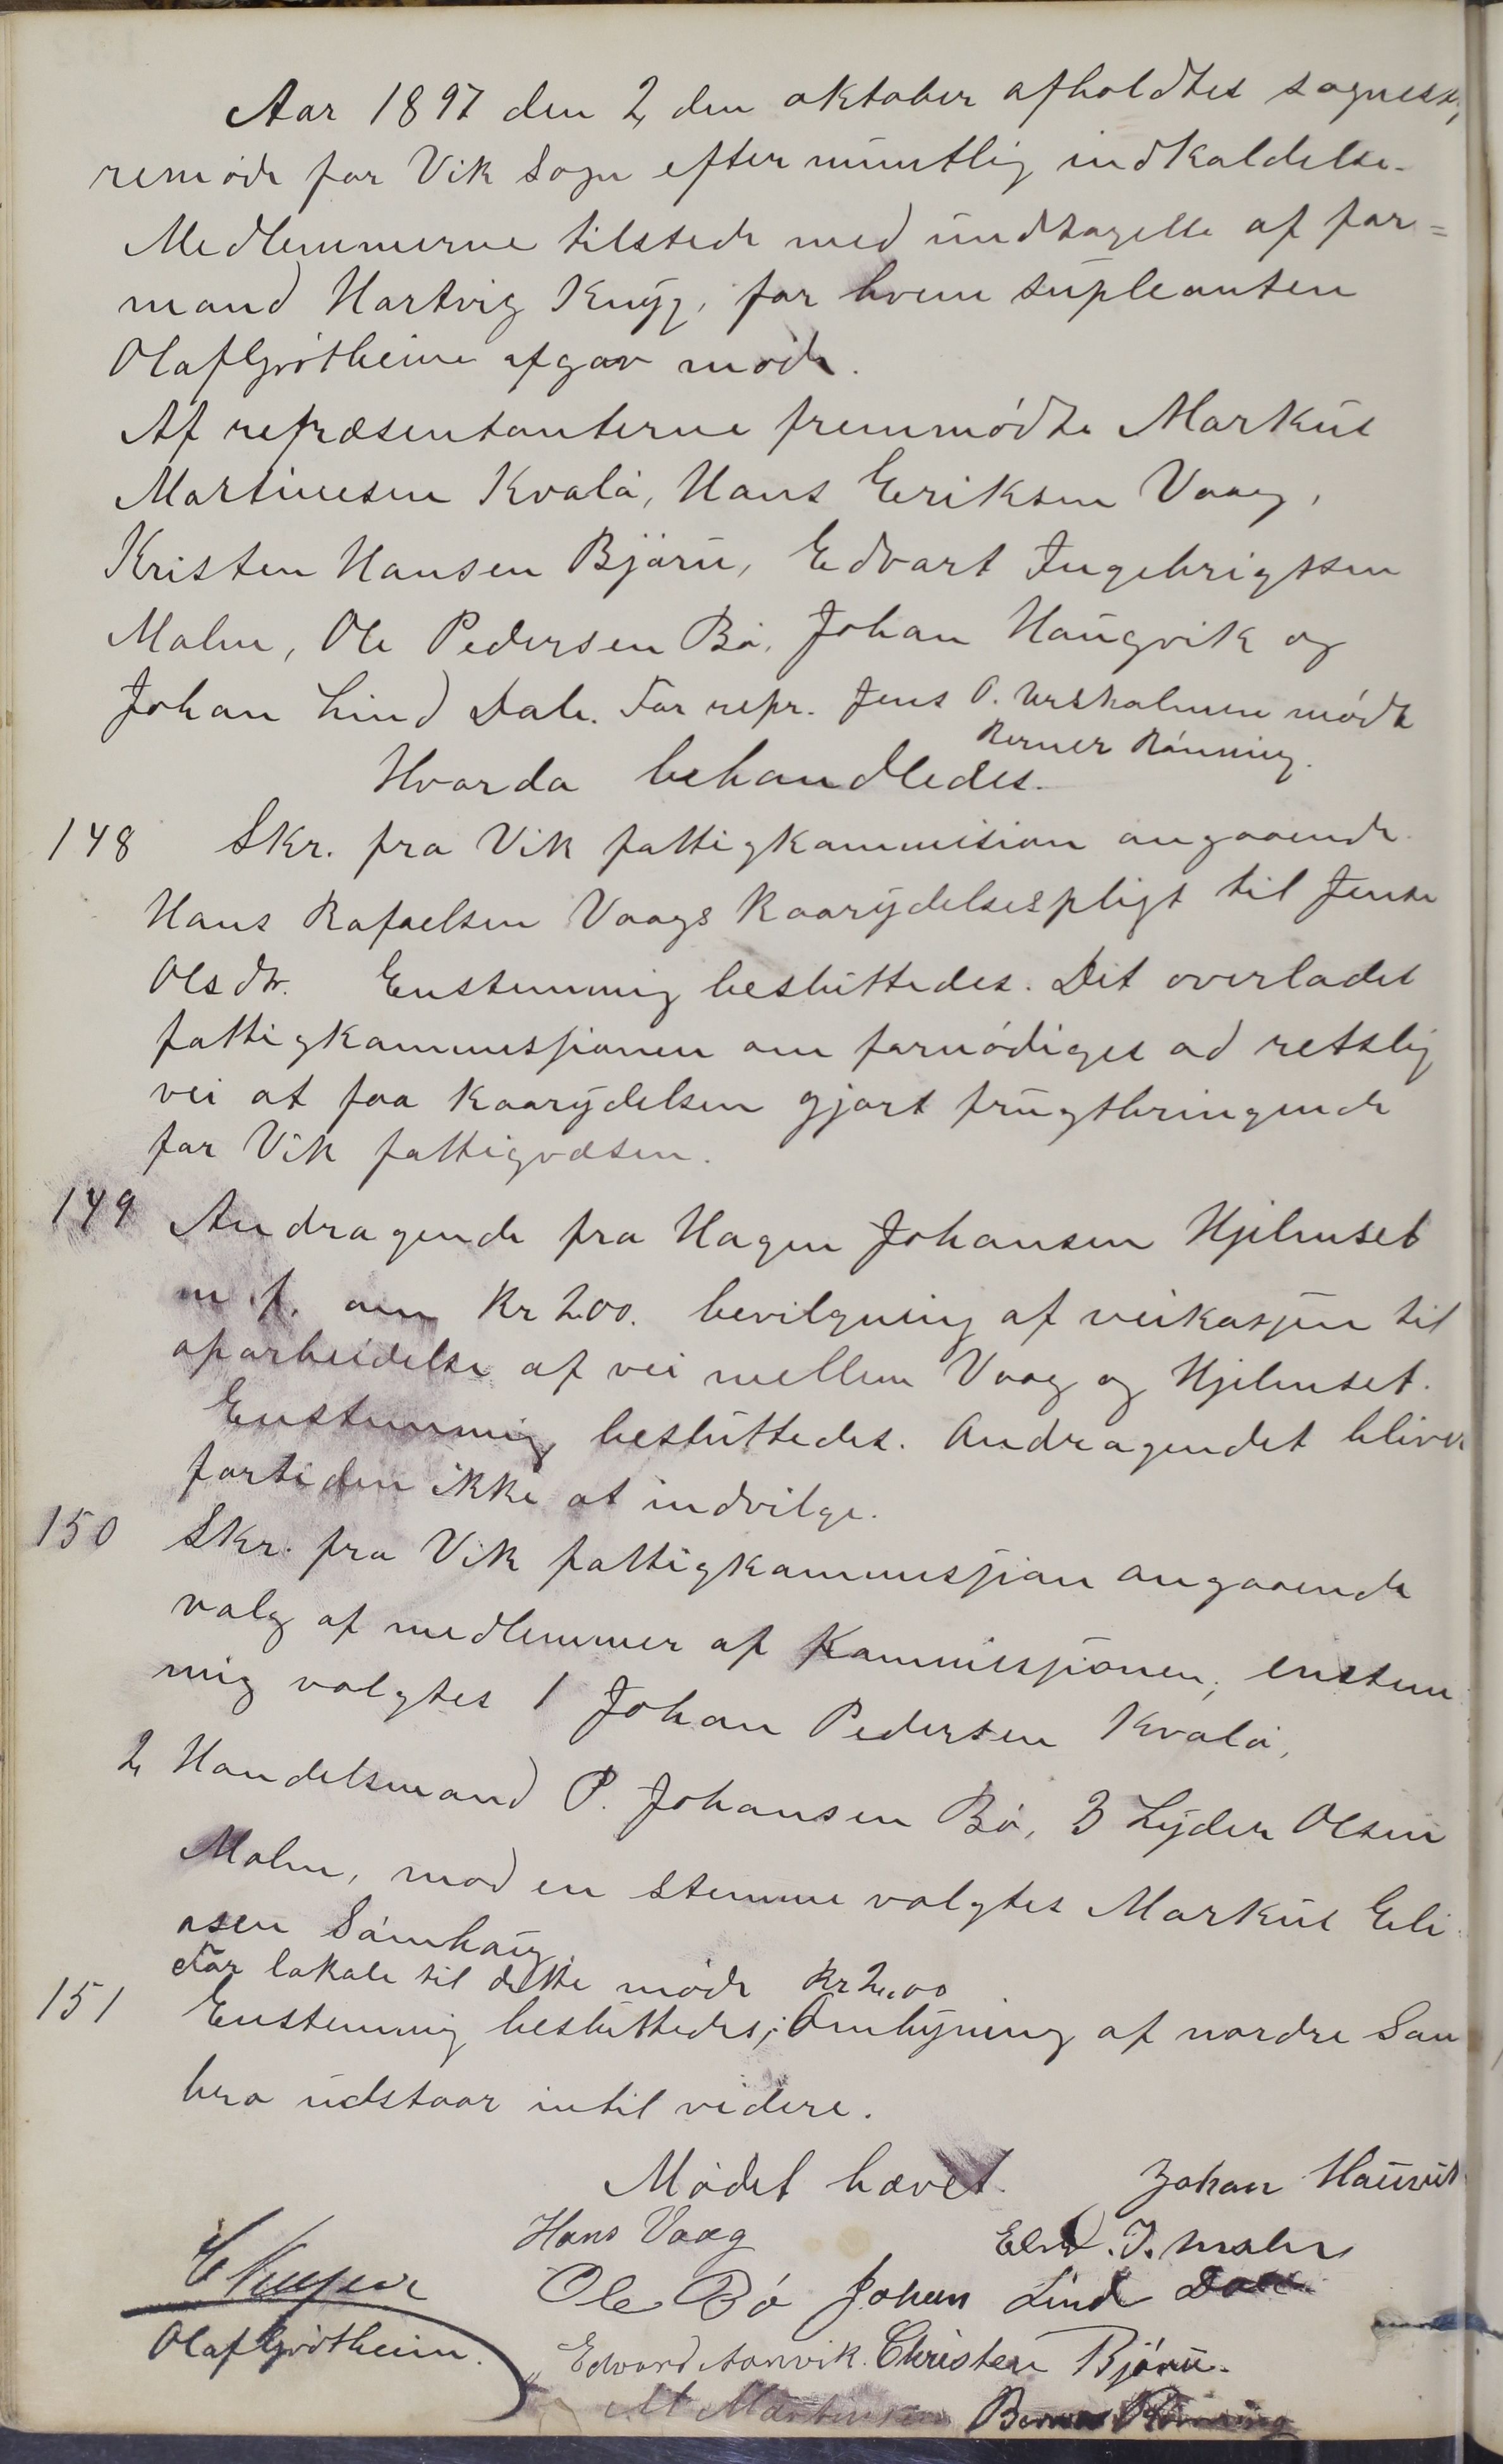 Aar 1897 den 2 den oktober afholdtes sognesty,
remøde for Vik Sogn efter mundtlig indkaldelse.
Medlemmerne tilstede med undtagelse af for=
mand Hartvig Knyg, for hvem supleanten
Olaf Grøtheim afgav møde.
Af repræsentanterne fremmødte Markus
Martinusen Kvalø, Hans Eriksen Vaag,
Kristen Hansen Bjøru, Edvart Ingebrigtsen
Malm, Ole Pedersen Bø, Johan Haugvik og
Johan Lind Dale. For repr. Jens O. Urskolmen mødte
Berner Rønning.
Hvorda behandledes.
148 Skr. fra Vik fattigkommision angaaende
Hans Rafaelsen Vaags kaarydelsespligt til Jense
Olsdtr. Enstemmig besluttedes. Det overlades
fattigkommissjonen om fornødiges ad retslig
vei at faa kaarydelsen gjort frugtbringende
for Vik fattigvæsen.
149 Andragende fra Hagen Johansen Hjelmset
m. f. om Kr 200. bevilgning af veikassen til
oparbeidelse af vei mellem Vaag og Hjelmset.
Enstemmig besluttedes. Andragendet bliver
fortiden ikke at indvilge.
150 Skr. fra Vik fattigkommissjion angaaende
valg af medlemmer af Kommissjionen, enstem
mig valgtes 1 Johan Pedersen Kvalø,
2 Handelsmand P. Johansen Bø, 3 Lyder Olsen
Malm, mod en stemme valgtes Markus Eli
asen Sømhaug.
For lokale til dette møde Kr 2,00
151 Enstemmig besluttedes; Ombyning af nordre San
bro udstaar intil videre.
Mødet hævet. Johan Hauvik
Hans Vaag Edvd. I. Malm
Ole Bø Johan Lind Dale
Olaf Grøtheim.
Edvard Aanvik. Christen Bjøru.
M Martinusen Berner Rønning